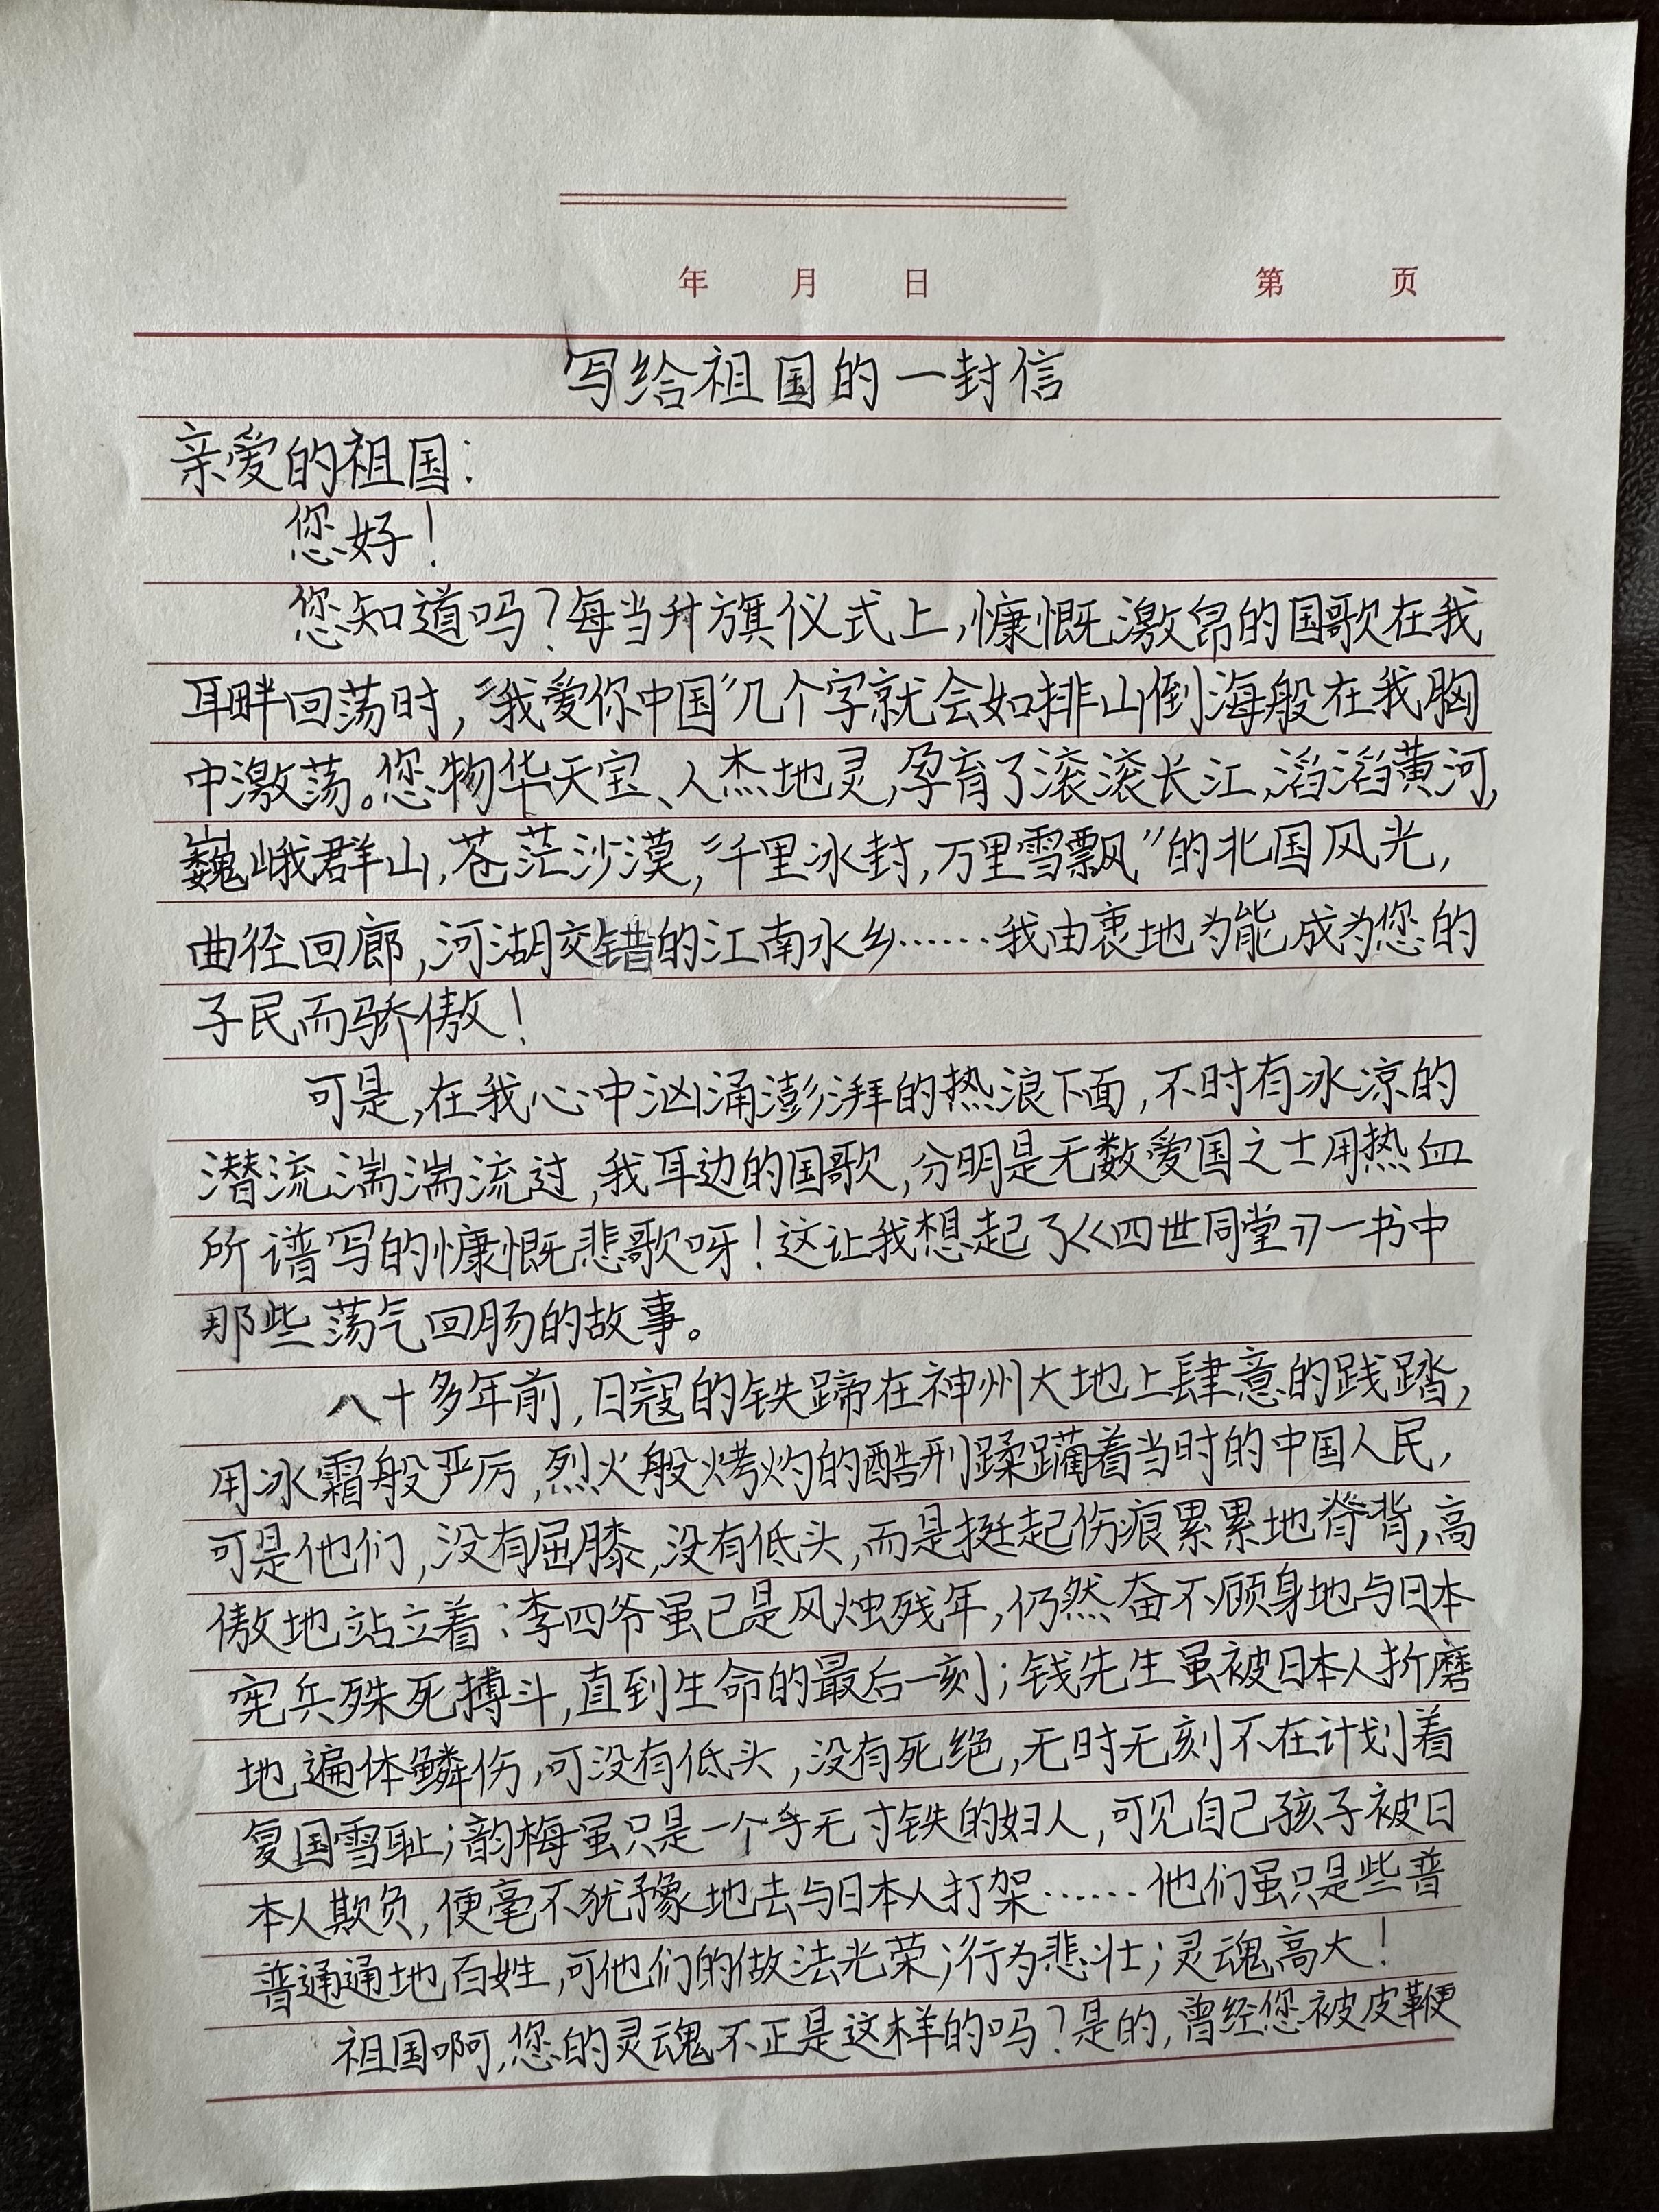 年 月 日 第 页
写给祖国的一封信
亲爱的祖国：
您好！
您知道吗？每当升旗仪式上，慷慨激昂的国歌在我
耳畔回荡时，“我爱你中国”几个字就会如排山倒海般在我胸
中激荡。您物华天宝、人杰地灵，孕育了滚滚长江，滔滔黄河，
巍峨群山，苍茫沙漠，“千里冰封，万里雪飘”的北国风光，
曲径回廊，河湖交错的江南水乡……我由衷地为能成为您的
子民而骄傲！
可是，在我心中汹涌澎湃的热浪下面，不时有冰凉的
潜流湍湍流过，我耳边的国歌，分明是无数爱国之士用热血
所谱写的慷慨悲歌呀！这让我想起了《四世同堂》一书中
那些荡气回肠的故事。
八十多年前，日寇的铁蹄在神州大地上肆意的践踏，
用冰霜般严厉，烈火般烤灼的酷刑蹂躏着当时的中国人民，
可是他们，没有屈膝，没有低头，而是挺起伤痕累累地脊背，高
傲地站立着：李四爷虽已是风烛残年，仍然奋不顾身地与日本
宪兵殊死搏斗，直到生命的最后一刻；钱先生虽被日本人折磨
地遍体鳞伤，可没有低头，没有死绝，无时无刻不在计划着
复国雪耻；韵梅虽只是一个手无寸铁的妇人，可见自己孩子被日
本人欺负，便毫不犹豫地去与日本人打架……他们虽只是些普
普通通地百姓，可他们的做法光荣；行为悲壮；灵魂高大！
祖国啊，您的灵魂不正是这样的吗？是的，曾经您被皮鞭